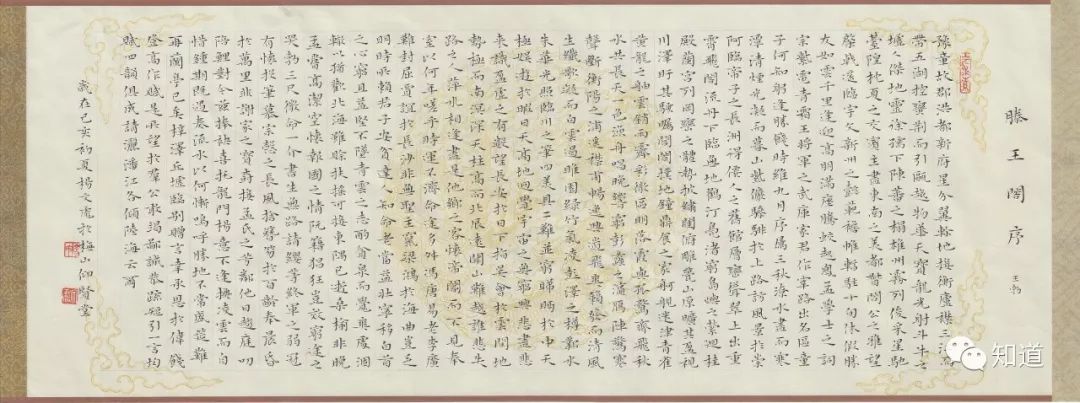 滕王閣序
王勃
豫章故郡洪都新府星分翼軫地接衡廬襟三江而
帶五湖控蠻荊而引甌越物華天寶龍光射斗牛之
墟人傑地靈徐孺下陳蕃之榻雄州霧列俊采星馳
臺隍枕夷夏之交賓主盡東南之美都督閻公之雅望
棨戟遙臨宇文新州之懿範襜帷暫駐十旬休假勝
友如雲千里逢迎高朋滿座騰蛟起鳳孟學士之詞
宗紫電青霜王將軍之武庫家君作宰路出名區童
子何知躬逢勝餞時維九月序屬三秋潦水盡而寒
潭清煙光凝而暮山紫儼驂騑於上路訪風景於崇
阿臨帝子之長洲得僊人之舊館層巒聳翠上出重
霄飛閣流丹下臨無地鶴汀鳧渚窮島嶼之縈迴桂
殿蘭宮列岡巒之體勢披繡闥俯雕甍山原曠其盈視
川澤盱其駭矚閭閻撲地鐘鳴鼎食之家舸艦迷津青雀
黃龍之舳雲銷雨霽彩徹區明落霞與孤鶩齊飛秋
水共長天一色漁舟唱晚響窮彭蠡之濱雁陣驚寒
聲斷衡陽之浦遙襟甫暢逸興遄飛爽籟發而清風
生纖歌凝而白雲遏睢園綠竹氣凌彭澤之樽鄴水
朱華光照臨川之筆四美具二難並窮睇眄於中天
極娛遊於暇日天高地迥覺宇宙之無窮興盡悲
來識盈虛之有數望長安於日下指吳會於雲間地
勢極而南溟深天柱高而北辰遠關山難越誰悲失
路之人萍水相逢盡是他鄉之客懷帝閽而不見奉
宣室以何年嗟乎時運不濟命途多舛馮唐易老李廣
難封屈賈誼於長沙非無聖主竄梁鴻於海曲豈乏
明時所賴君子安貧達人知命老當益壯寧移白首
之心窮且益堅不墜青雲之志酌貪泉而覺爽處涸
轍以猶歡北海雖賒扶搖可接東隅已逝桑榆非晚
孟嘗高潔空懷報國之情阮籍猖狂豈效窮途之
哭勃三尺微命一介書生無路請纓等終軍之弱冠
有懷投筆慕宗愨之長風捨簪笏於百齡奉晨昏
於萬里非謝家之寶樹接孟氏之芳鄰他日趨庭叨
陪鯉對今茲捧袂喜托龍門楊意不逢撫凌雲而自
惜鍾期既遇奏流水以何慚嗚呼勝地不常盛筵難
再蘭亭已矣梓澤丘墟臨別贈言幸承恩於偉餞
登高作賦是所望於羣公敢竭鄙誠恭疏短引一言均
賦四韻俱成請灑潘江各傾陸海云爾
歲在己亥初夏楊文虎於梅山仰賢堂
知道